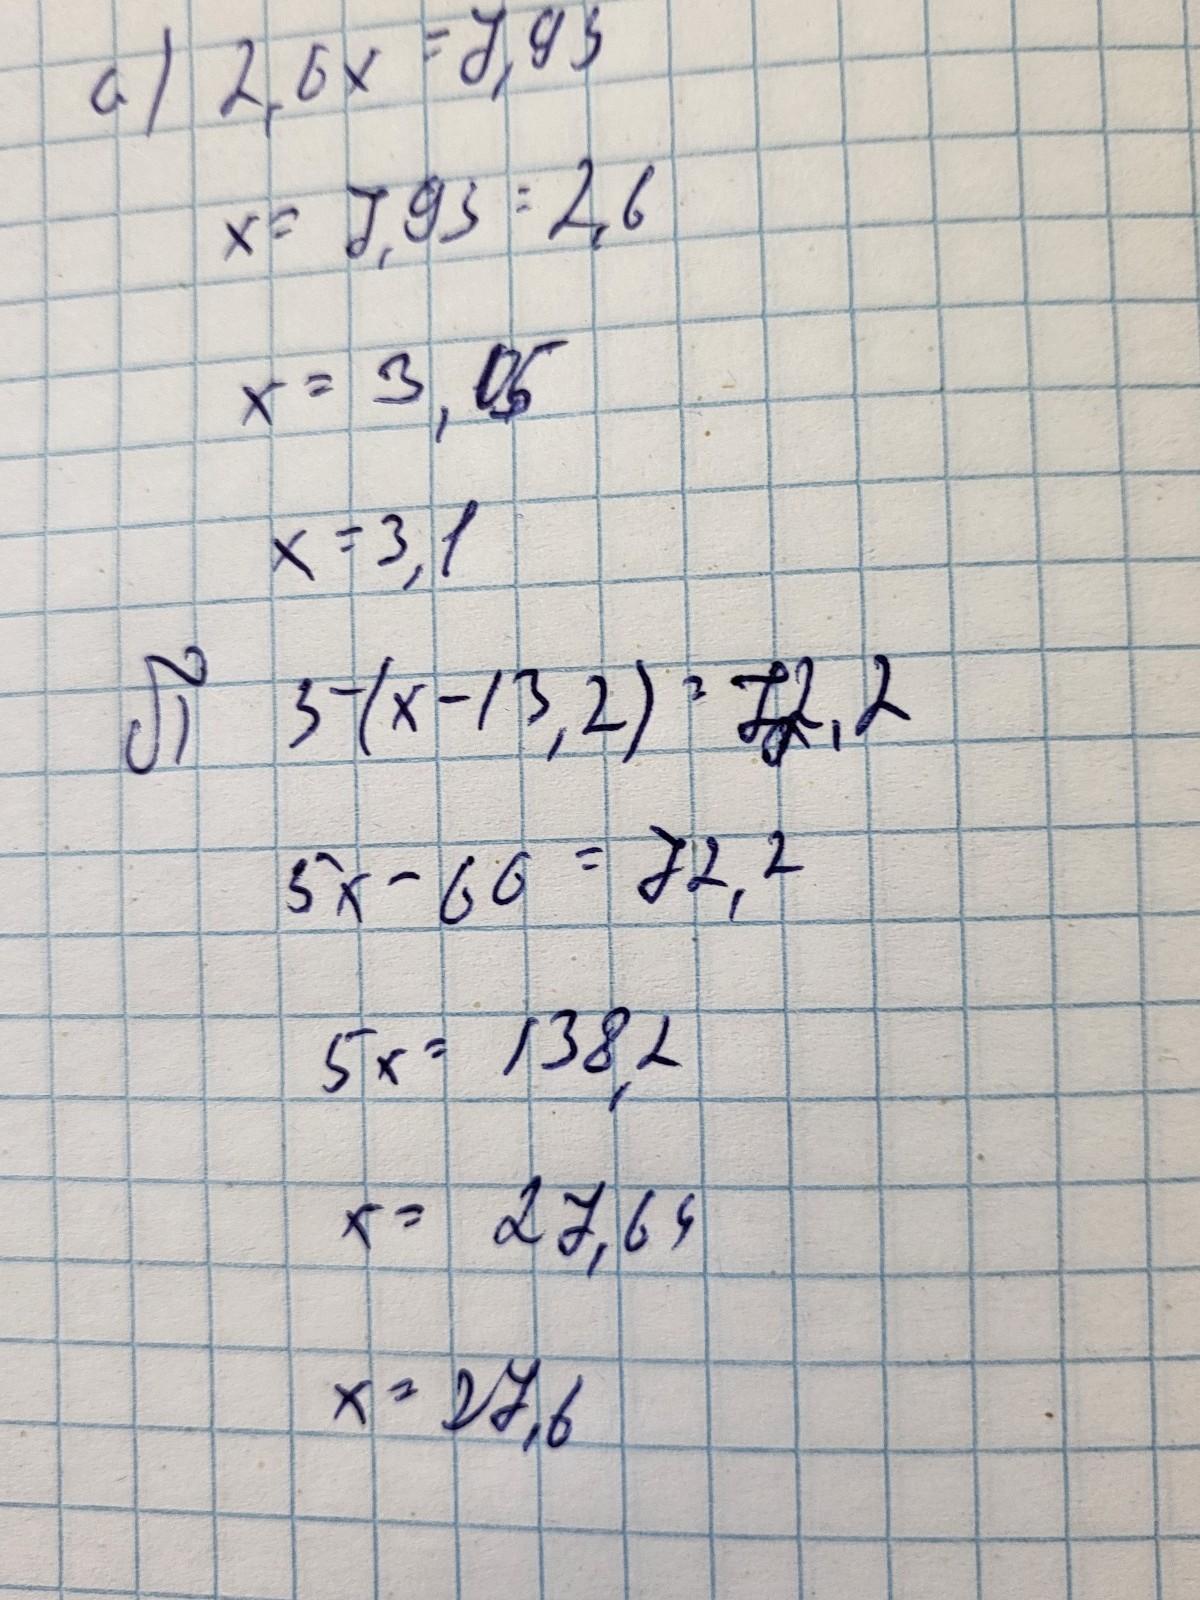 а) 2,6x = 7,93
x = 7,93 : 2,6
x = 3,05
x = 3,1
б) 5(x - 13,2) = 72,2
5x - 66 = 72,2
5x = 138,2
x = 27,64
x = 27,6